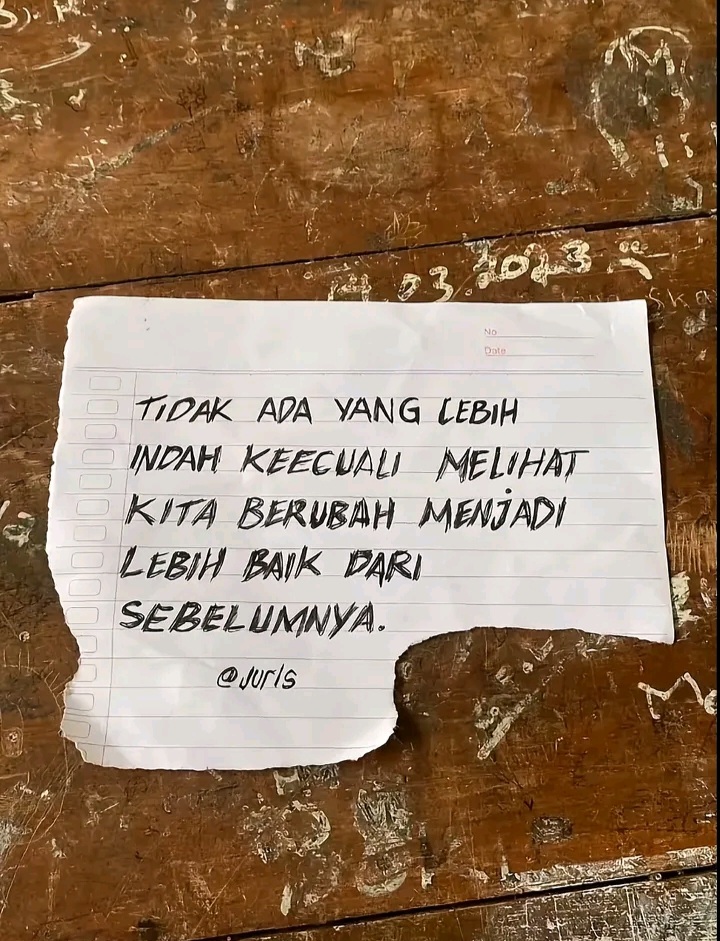 .03.2023
No
Date
TIDAK ADA YANG LEBIH
INDAH KEECUALI MELIHAT
KITA BERUBAH MENJADI
LEBIH BAIK DARI
SEBELUMNYA.
@jurls